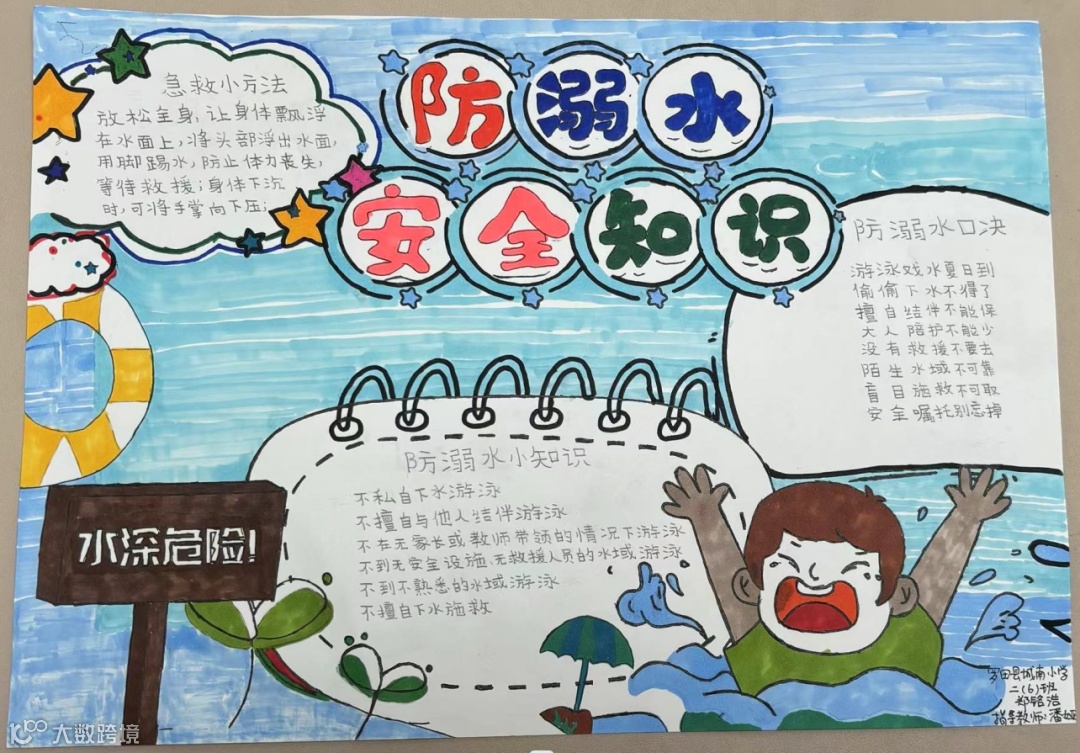 防溺水
安全知识
急救小方法
放松全身,让身体飘浮
在水面上,将头部浮出水面,
用脚踢水,防止体力丧失,
等待救援;身体下沉
时,可将手掌向下压;
防溺水口决
游泳戏水夏日到
偷偷下水不得了
擅自结伴不能保
大人陪护不能少
没有救援不要去
陌生水域不可靠
盲目施救不可取
安全嘱托别忘掉
防溺水小知识
不私自下水游泳
不擅自与他人结伴游泳
不在无家长或教师带领的情况下游泳
不到无安全设施、无救援人员的水域游泳
不到不熟悉的水域游泳
不擅自下水施救
水深危险!
罗田县城南小学
二(6)班
郑铭浩
指导教师:潘娅
大数跨境